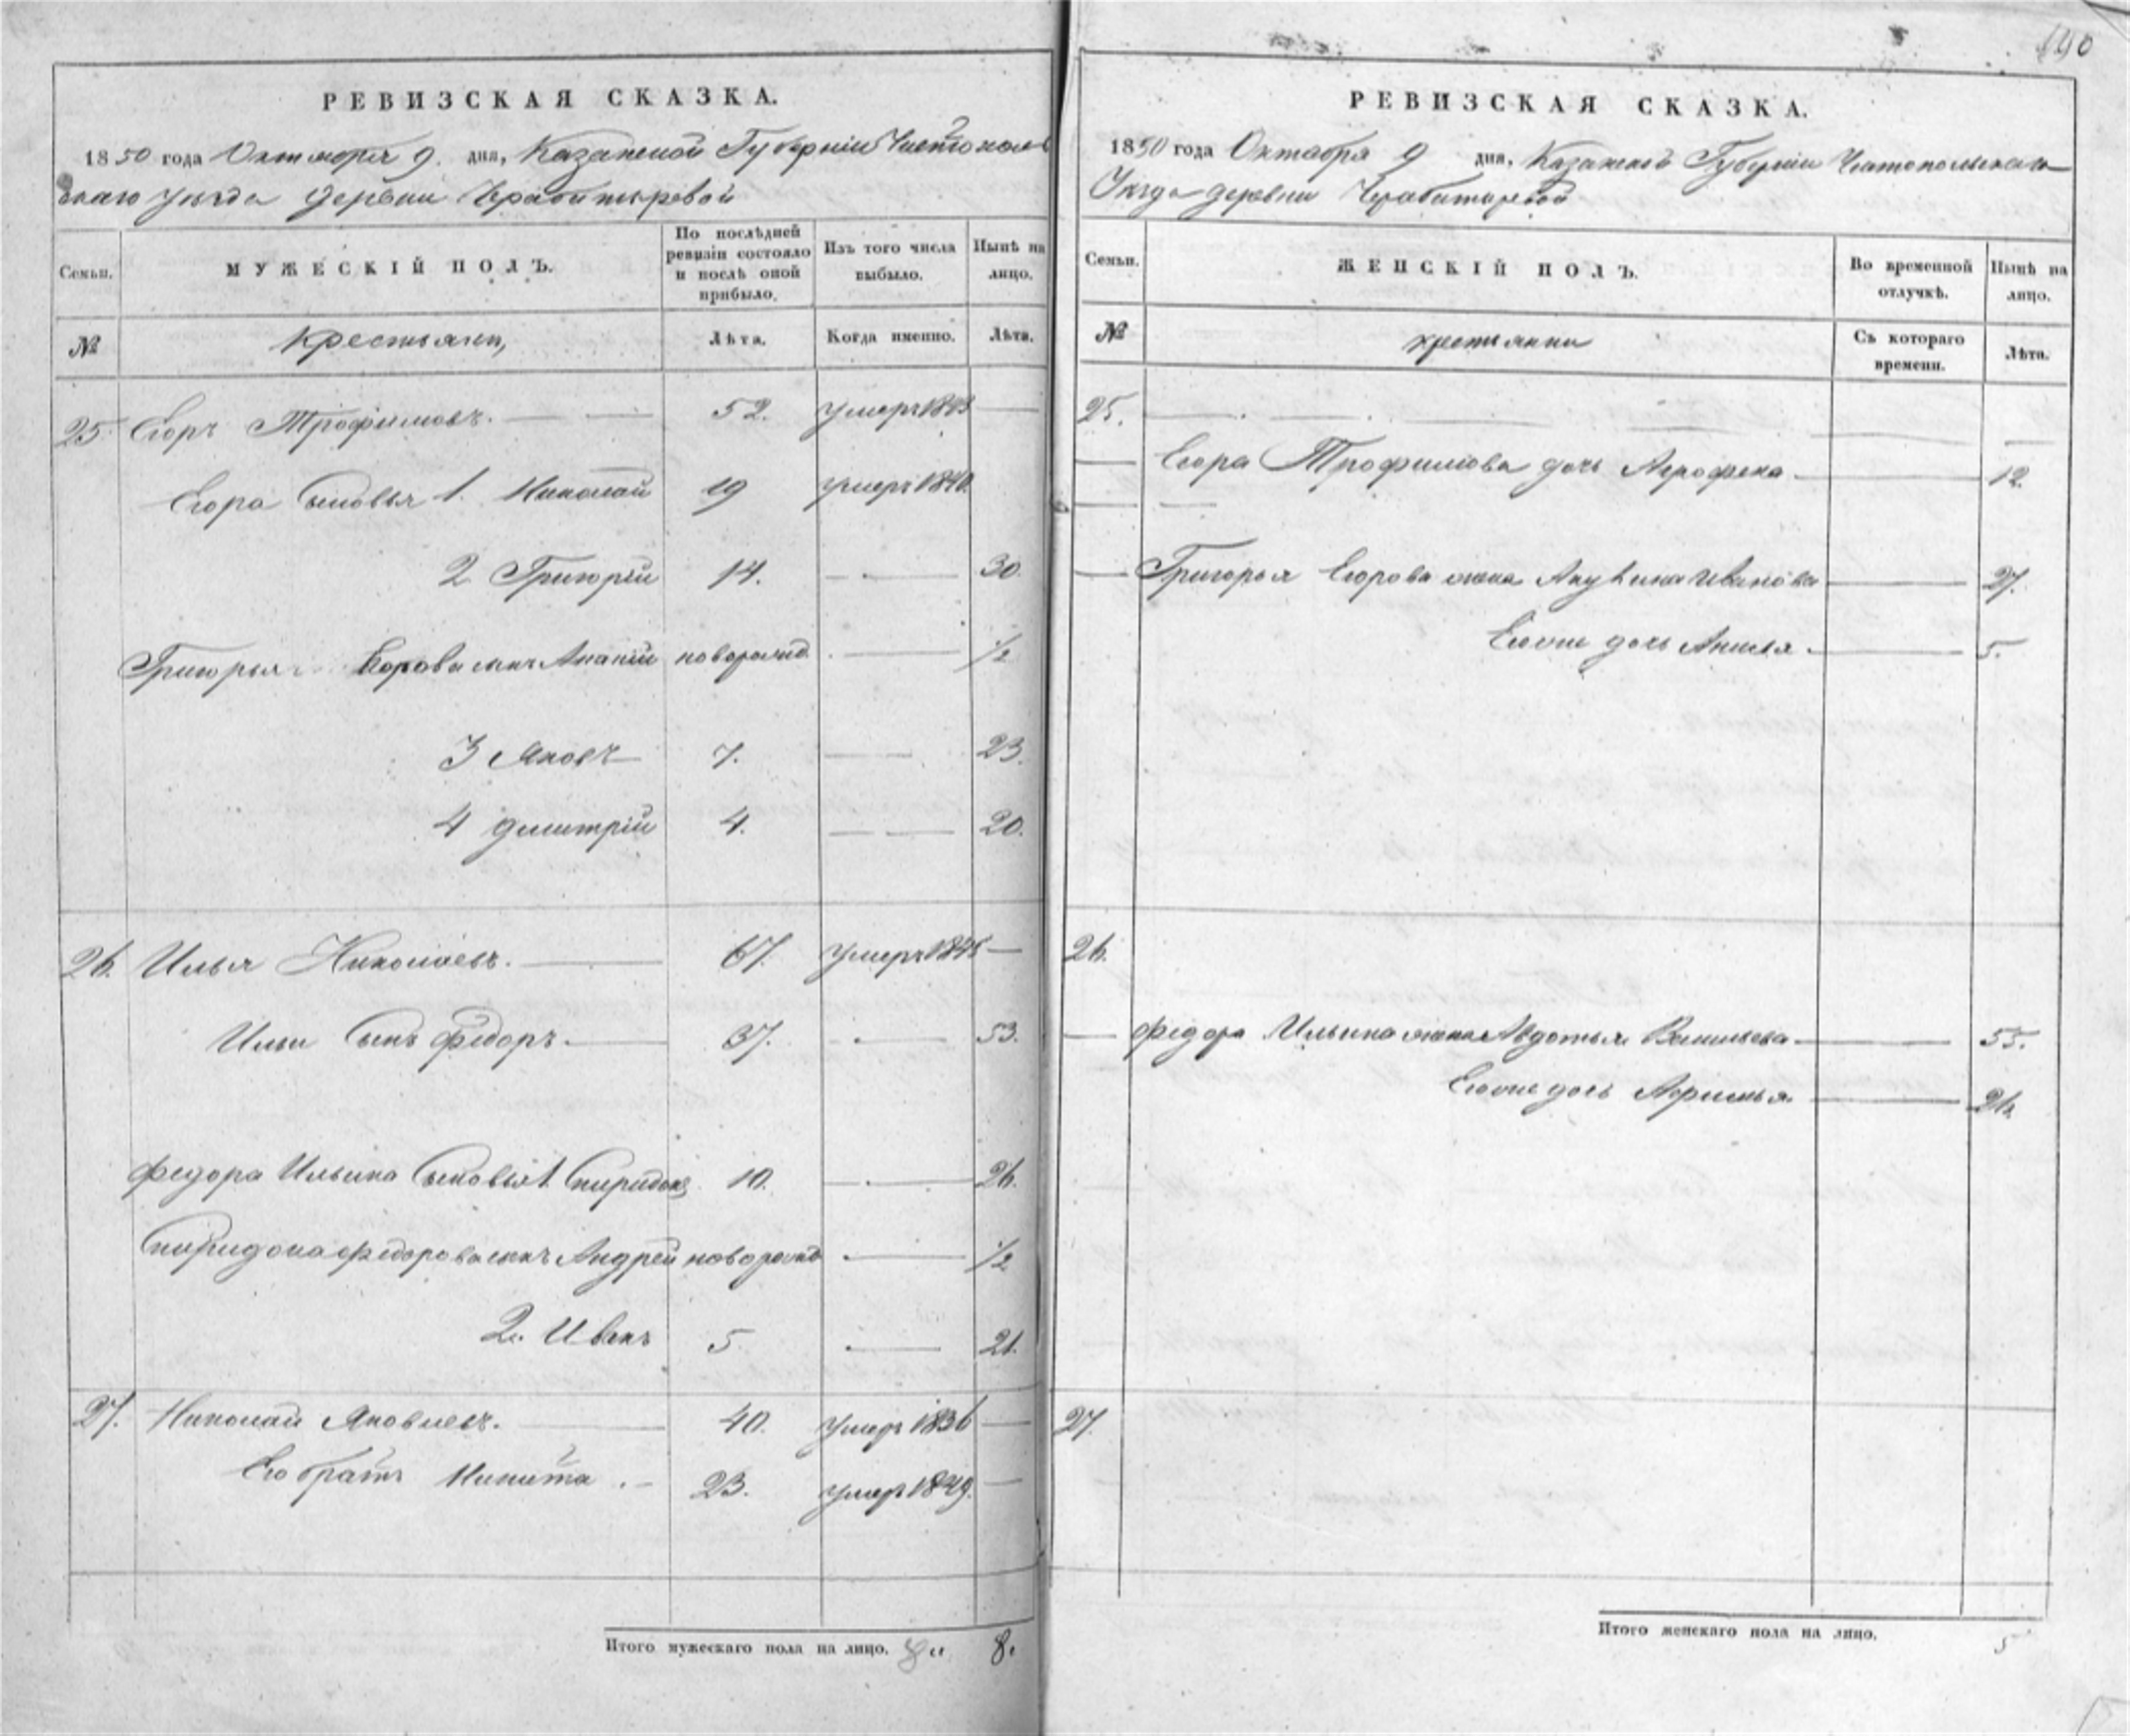 190
РЕВИЗСКАЯ СКАЗКА.
1850 года Октября 9. дня, Казанской Губерніи Чистополь
скаго уѣзда деревни
Семьи. МУЖЕСКІЙ ПОЛЪ. По послѣдней ревизіи состояло и послѣ оной прибыло. Изъ того числа выбыло. Нынѣ на лицо.
№ крестьяне, Лѣта. Когда именно. Лѣта.
25 Егоръ Трофимовъ. 52. умеръ 1843
Егора Сыновья 1. Николай 19 умеръ 1840.
2 Григорій 14. 30.
Григорья Егорова сынъ Ананій новорожд. 1/2
3 Яковъ 7. 23.
4 Дмитрій 4. 20.
26. Илья Николаевъ. 67. умеръ 1845
Ильи Сынъ Федоръ. 37. 53.
Федора Ильина Сыновья 1. Спиридонъ 10. 26.
Спиридона Федорова сынъ Андрей новорожд 1/2
2. Иванъ 5. 21.
27. Николай Яковлевъ. 40. умеръ 1836
Его братъ Никита. 23. умеръ 1849.
Итого мужескаго пола на лицо. 8 8.
РЕВИЗСКАЯ СКАЗКА.
1850 года Октября 9 дня, Казанской Губерніи Чистопольскаго
Уѣзда деревни
Семьи. ЖЕНСКІЙ ПОЛЪ. Во временной отлучкѣ. Нынѣ на лицо.
№ крестьянки Съ котораго времени. Лѣта.
25.
Егора Трофимова дочь Агрофена 12.
Григорья Егорова жена Акулина Иванова 27.
Егоже дочь 5.
26.
Федора Ильина жена Авдотья Васильева 55.
Егоже дочь 26.
27.
Итого женскаго пола на лицо. 5